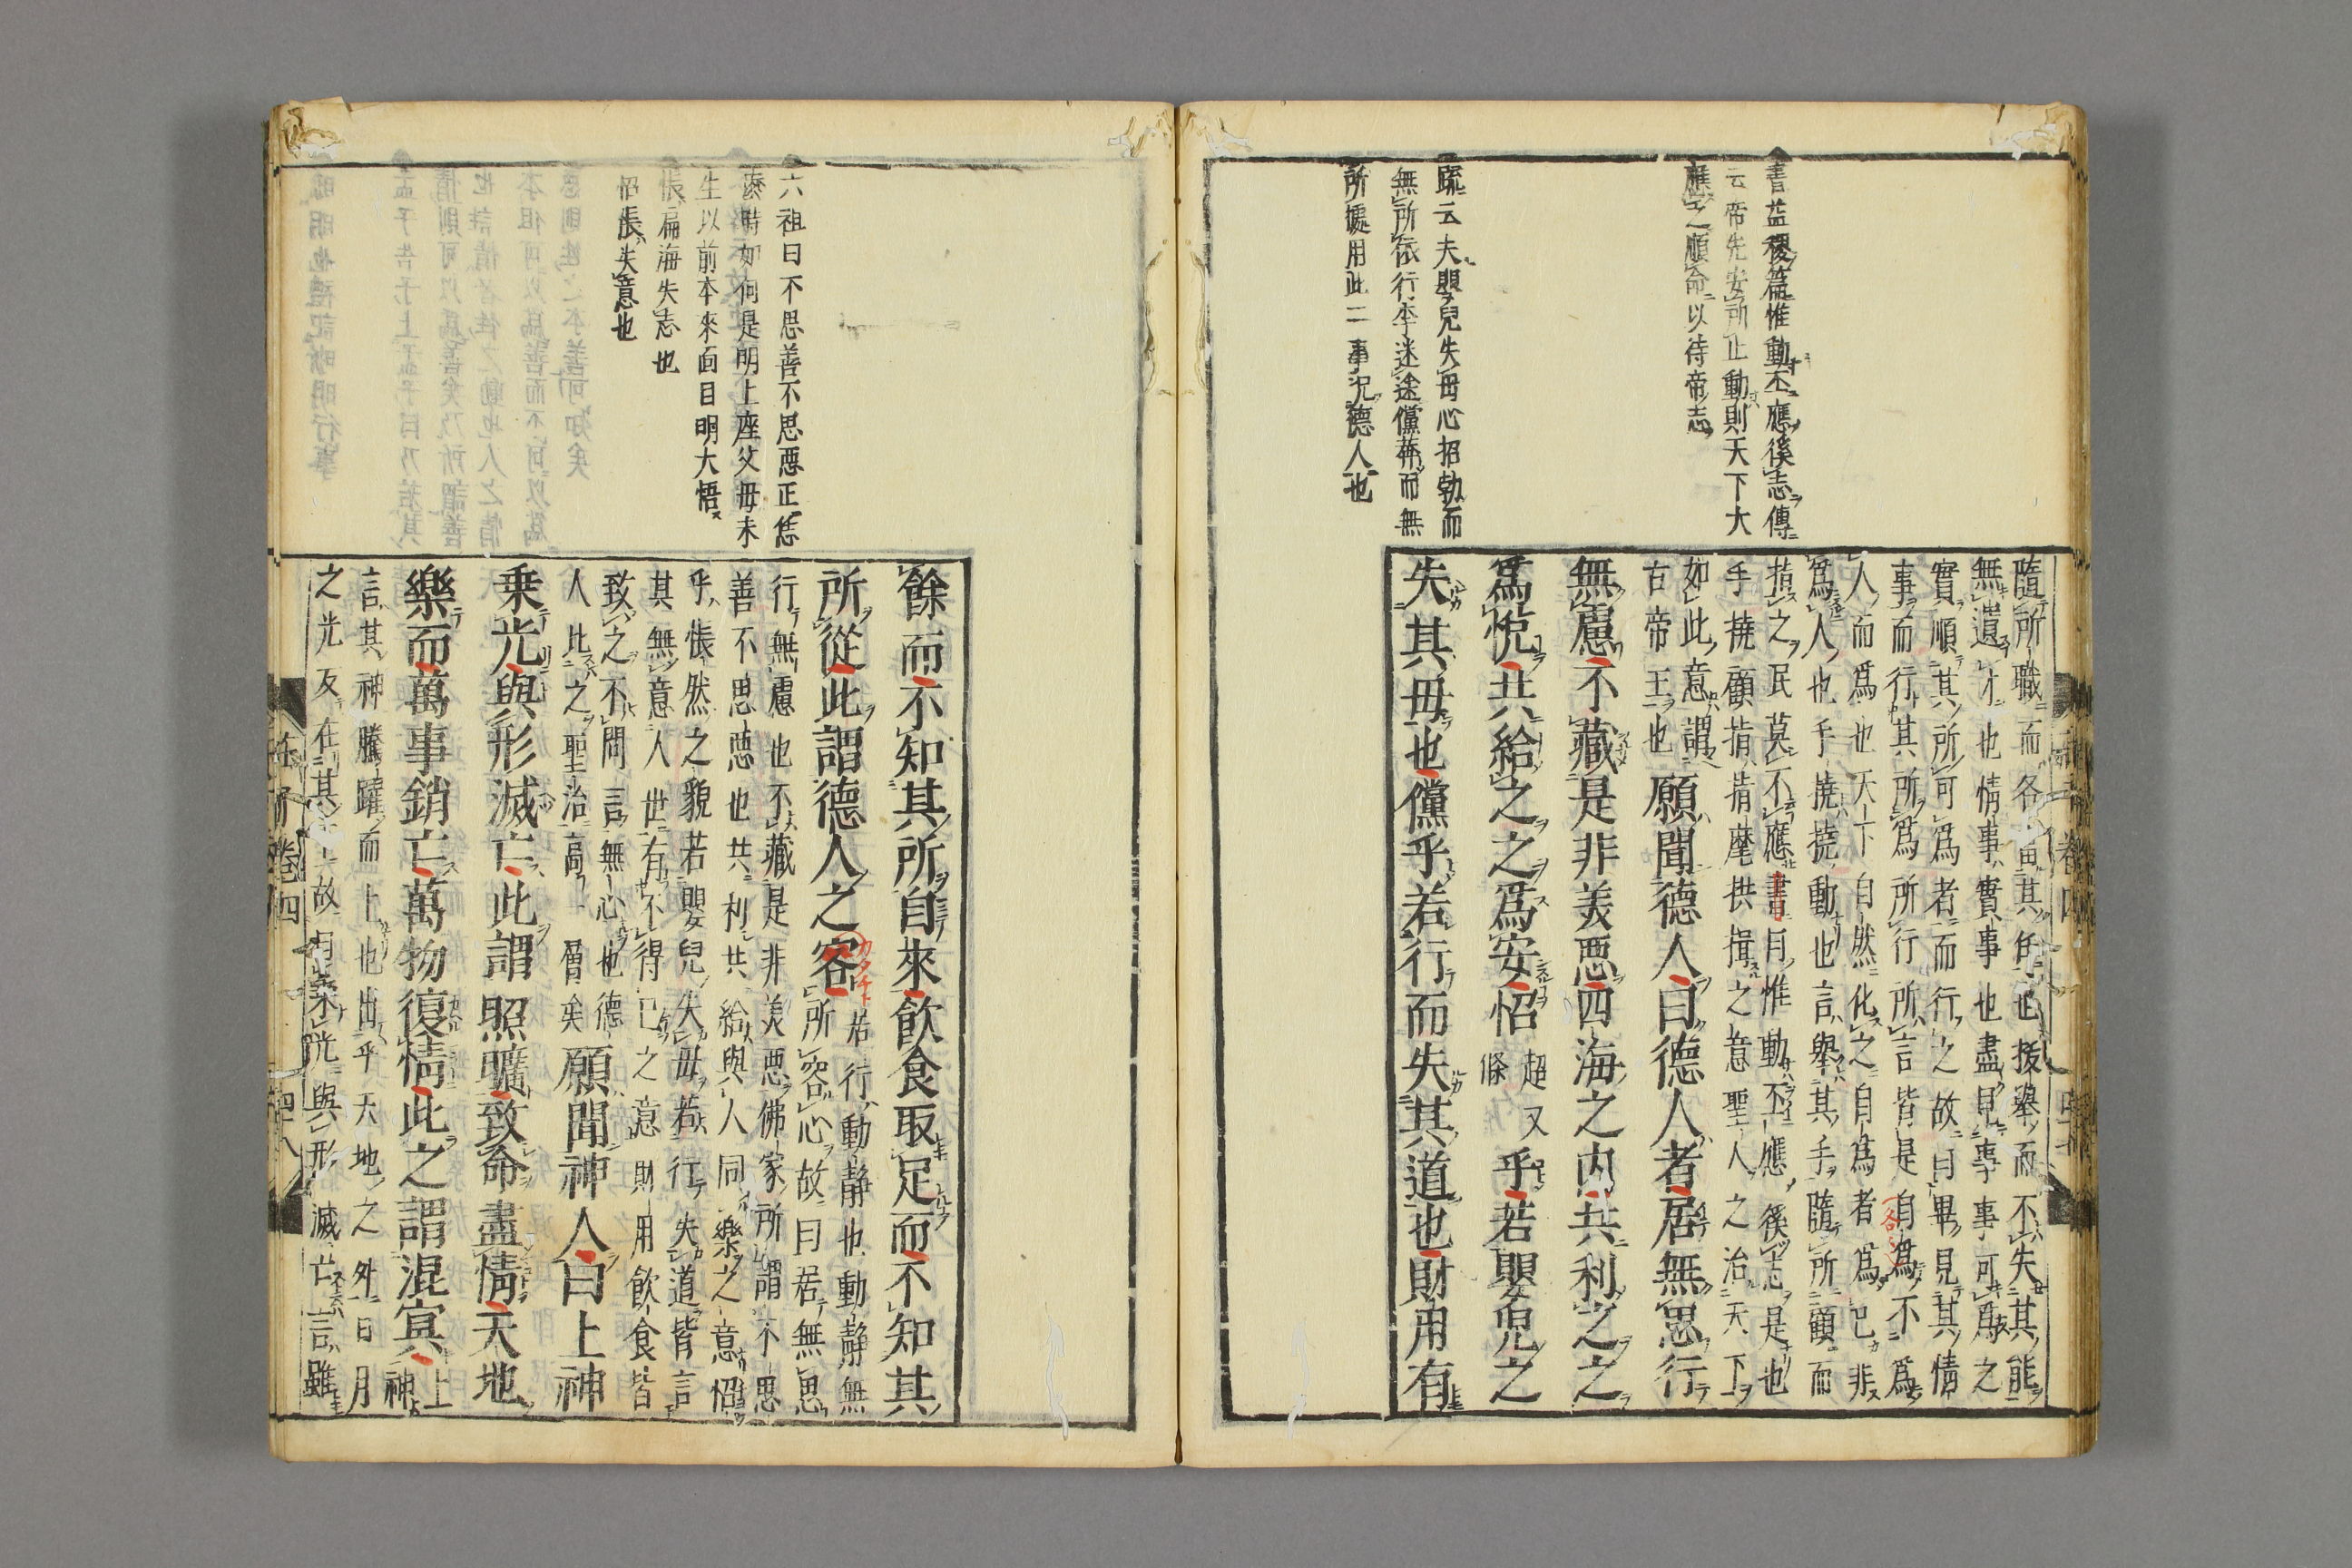 書益稷篇惟動丕應徯志傳
云帝先安所止動則天下大
應之順命以待帝志
疏云夫嬰兒失母心怊勃而
無所依行李迷途儻莽而無
所據用此二事況德人也
隨所職而各當其任也拔擧而不失其能
無遺才也情事實事也盡見事事可爲之
實順其所可爲者而行之故曰畢見其情
事而行其所爲所行所言皆是自爲不爲
人而爲也天下自然化之自爲者爲己非
爲人也手撓撓動也言擧其手隨所顧而
指之民莫不應書曰惟動丕應徯志是也
手撓顧指指麾拱揖之意聖人之治天下
如此意謂
古帝王也
願聞德人曰德人者居無思行
無慮不藏是非美惡四海之内共利之之
爲悅共給之之爲安怊
超又
條
乎若嬰兒之
失其母也儻乎若行而失其道也財用有
六祖曰不思善不思惡正恁
麽時如何是明上座父母未
生以前本來面目明大悟
悵扁海失志也
怊悵失意也
餘而不知其所自來飮食取足而不知其
所從此謂德人之容
若行動靜也動靜無
所容心故曰居無思
行無慮也不藏是非美惡佛家所謂不思
善不思惡也共利共給與人同樂之意怊
乎悵然之貌若嬰兒失母若行失道皆言
其無意人世有不得已之意財用飮食皆
致之不問言無心也德
人比之聖治高一層矣
願聞神人曰上神
乗光與形滅亡此謂照曠致命盡情天地
樂而萬事銷亡萬物復情此之謂混冥
上
神
言其神騰躍而上也出乎天地之外日月
之光反在其
故
乗光與形滅亡言雖
卷四